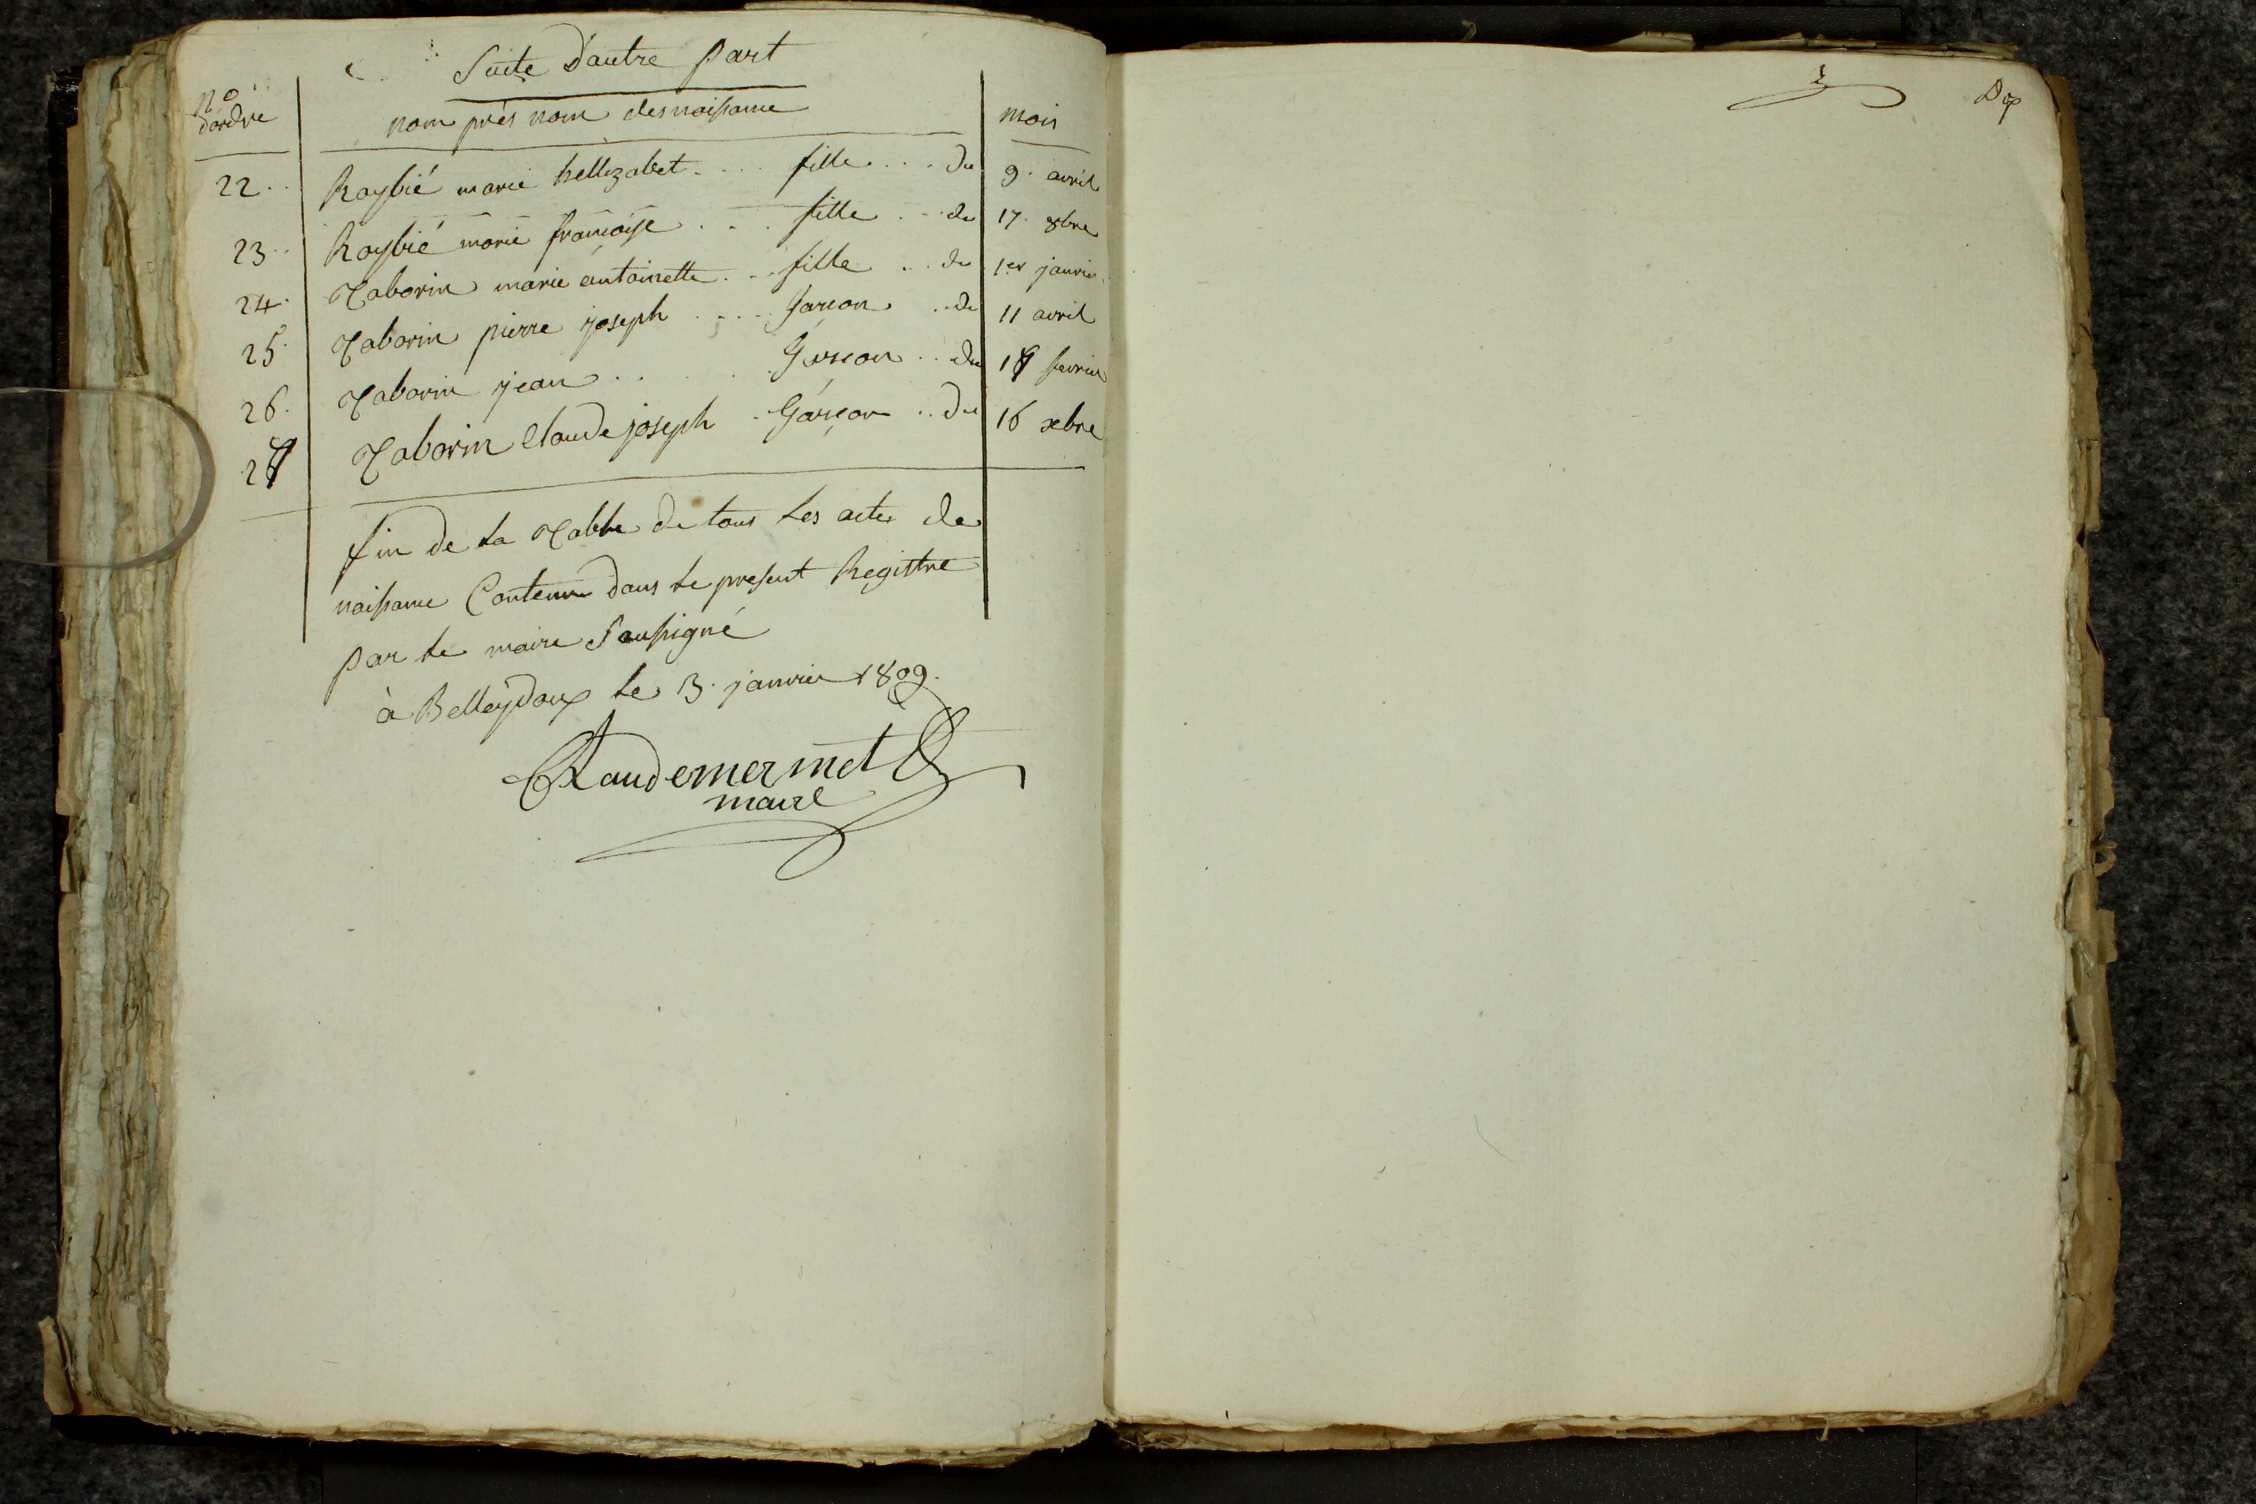 Suite d'autre part
no d'ordre nom prés nom des naissance mois
22 .. Raybié marie hellizabet .... fille ... du 9. avril
23 .. Raybié marie françoise .... fille ... du 17. 8bre
24. Taborin marie antoinette .. fille .. du 1er janvier
25. Taborin pierre joseph ..... garcon .. du 11 avril
26. Taborin jean ...... Garcon .. du fevrier
27 Taborin Claude joseph . Garçon .. du 16 xbre
fin de la Table de tous les actes de
naissance Contenu dans le present Registre
par le maire Soussigné
à Belleydoux le 3. janvier 1809.
Claudemermet
maire